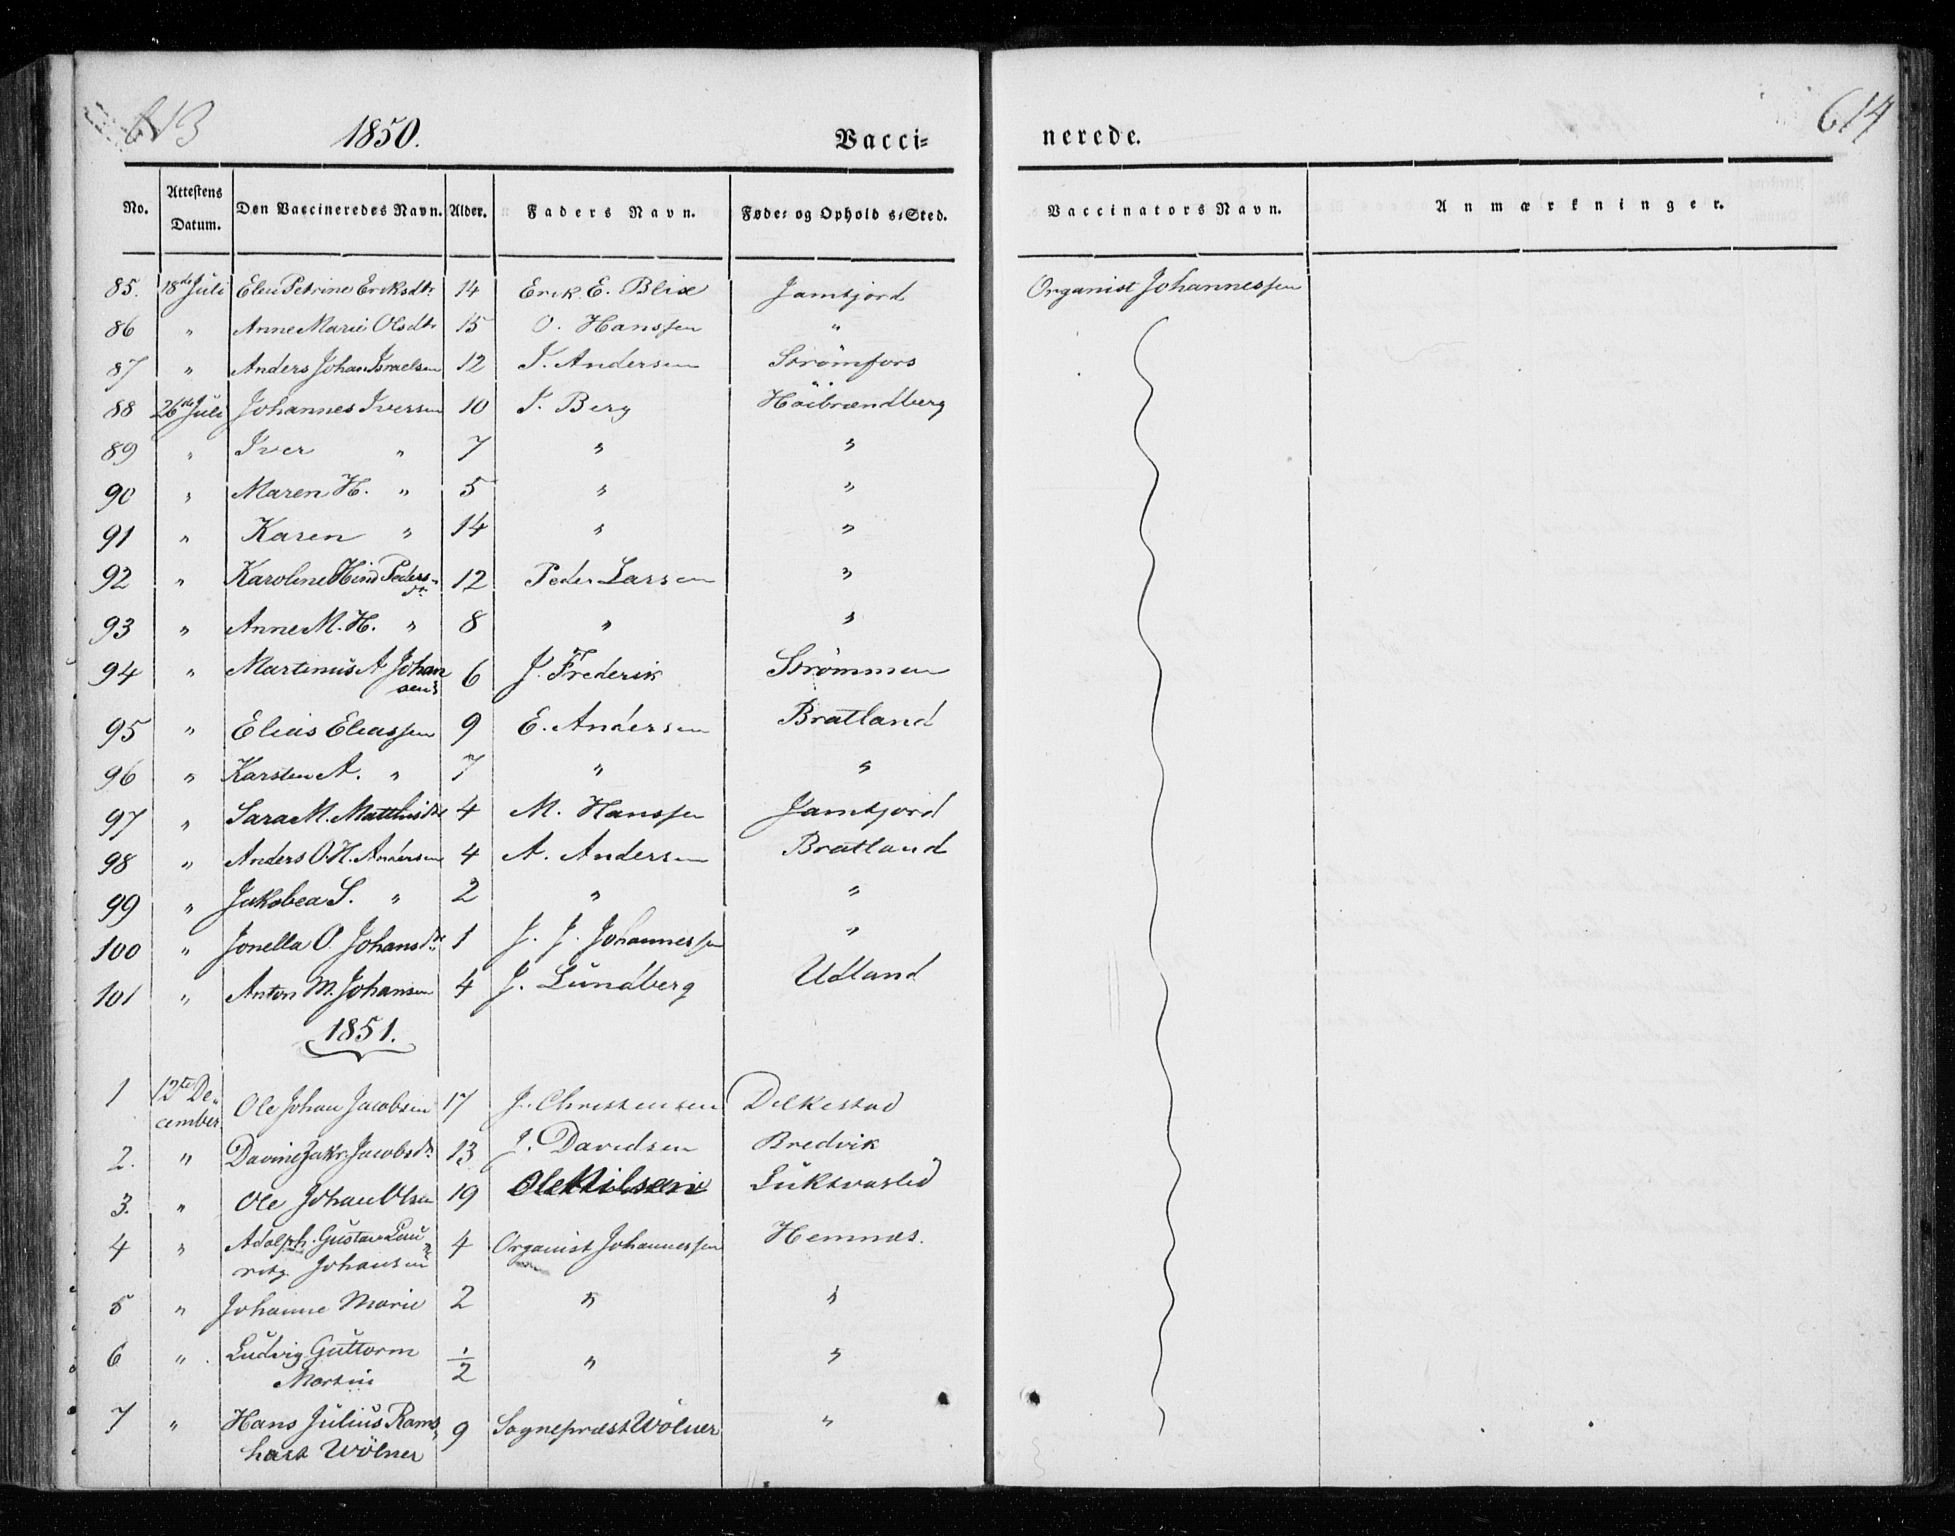 613
1850.
Vacci=
nerede.
614
No. Attestens Datum. Den Vaccineredes Navn. Alder. Faders Navn. Føde= og Ophold s=Sted. Vaccinators Navn. Anmærkninger.
85. 18de Juli Elen Petrine Eriksdtr 14 Erik E. Blix Jamtjord Organist Johannessen
86 " Anne Marie Olsdtr 15 O. Hanssen "
87 " Anders Johan Israelsen 12 I. Andersen Strømfors
88 26de Juli Johannes Iversen 10 I. Berg Höibrændberg
89 " Iver " 7 " "
90 " Maren H. " 5 " "
91 " Karen " 14 " "
92 " Karoline Hind Peders=
dtr 12 Peder Larsen "
93 " Anne M. H. " 8 " "
94 " Martinus A Johan
sen 6 J. Frederik Strømmen
95 " Elias Eliassen 9 E. Andersen Bratland
96 " Karsten A. " 7 " "
97 " Sara M. Matthisdtr 4 M. Hanssen Jamtjord
98 " Anders O. H. Andersen 4 A. Andersen Bratland
99 " Jakobea S. " 2 " "
100 " Jonella O. Johansdtr 1 J. J. Johannessen "
101 " Anton M. Johansen 4 J. Lundberg Udland
1851.
1 12te De=
cember Ole Johan Jacobsen 17 J. Christensen Delkestad
2. " Davine Jakr. Jacobsdr 13 J. Davidsen Bredvik
3. " Ole Johan Olsen 19 Ole Nilsen Luktvasled
4 " Adolph Gustav Lau=
ritz Johansen 4 Organist Johannessen Hemnæs.
5 " Johanne Marie 2 " "
6 " Ludvig Guttorm
Martin 1/2 " "
7 " Hans Julius Rams
hart Wölner 9 Sognepræst Wölner "